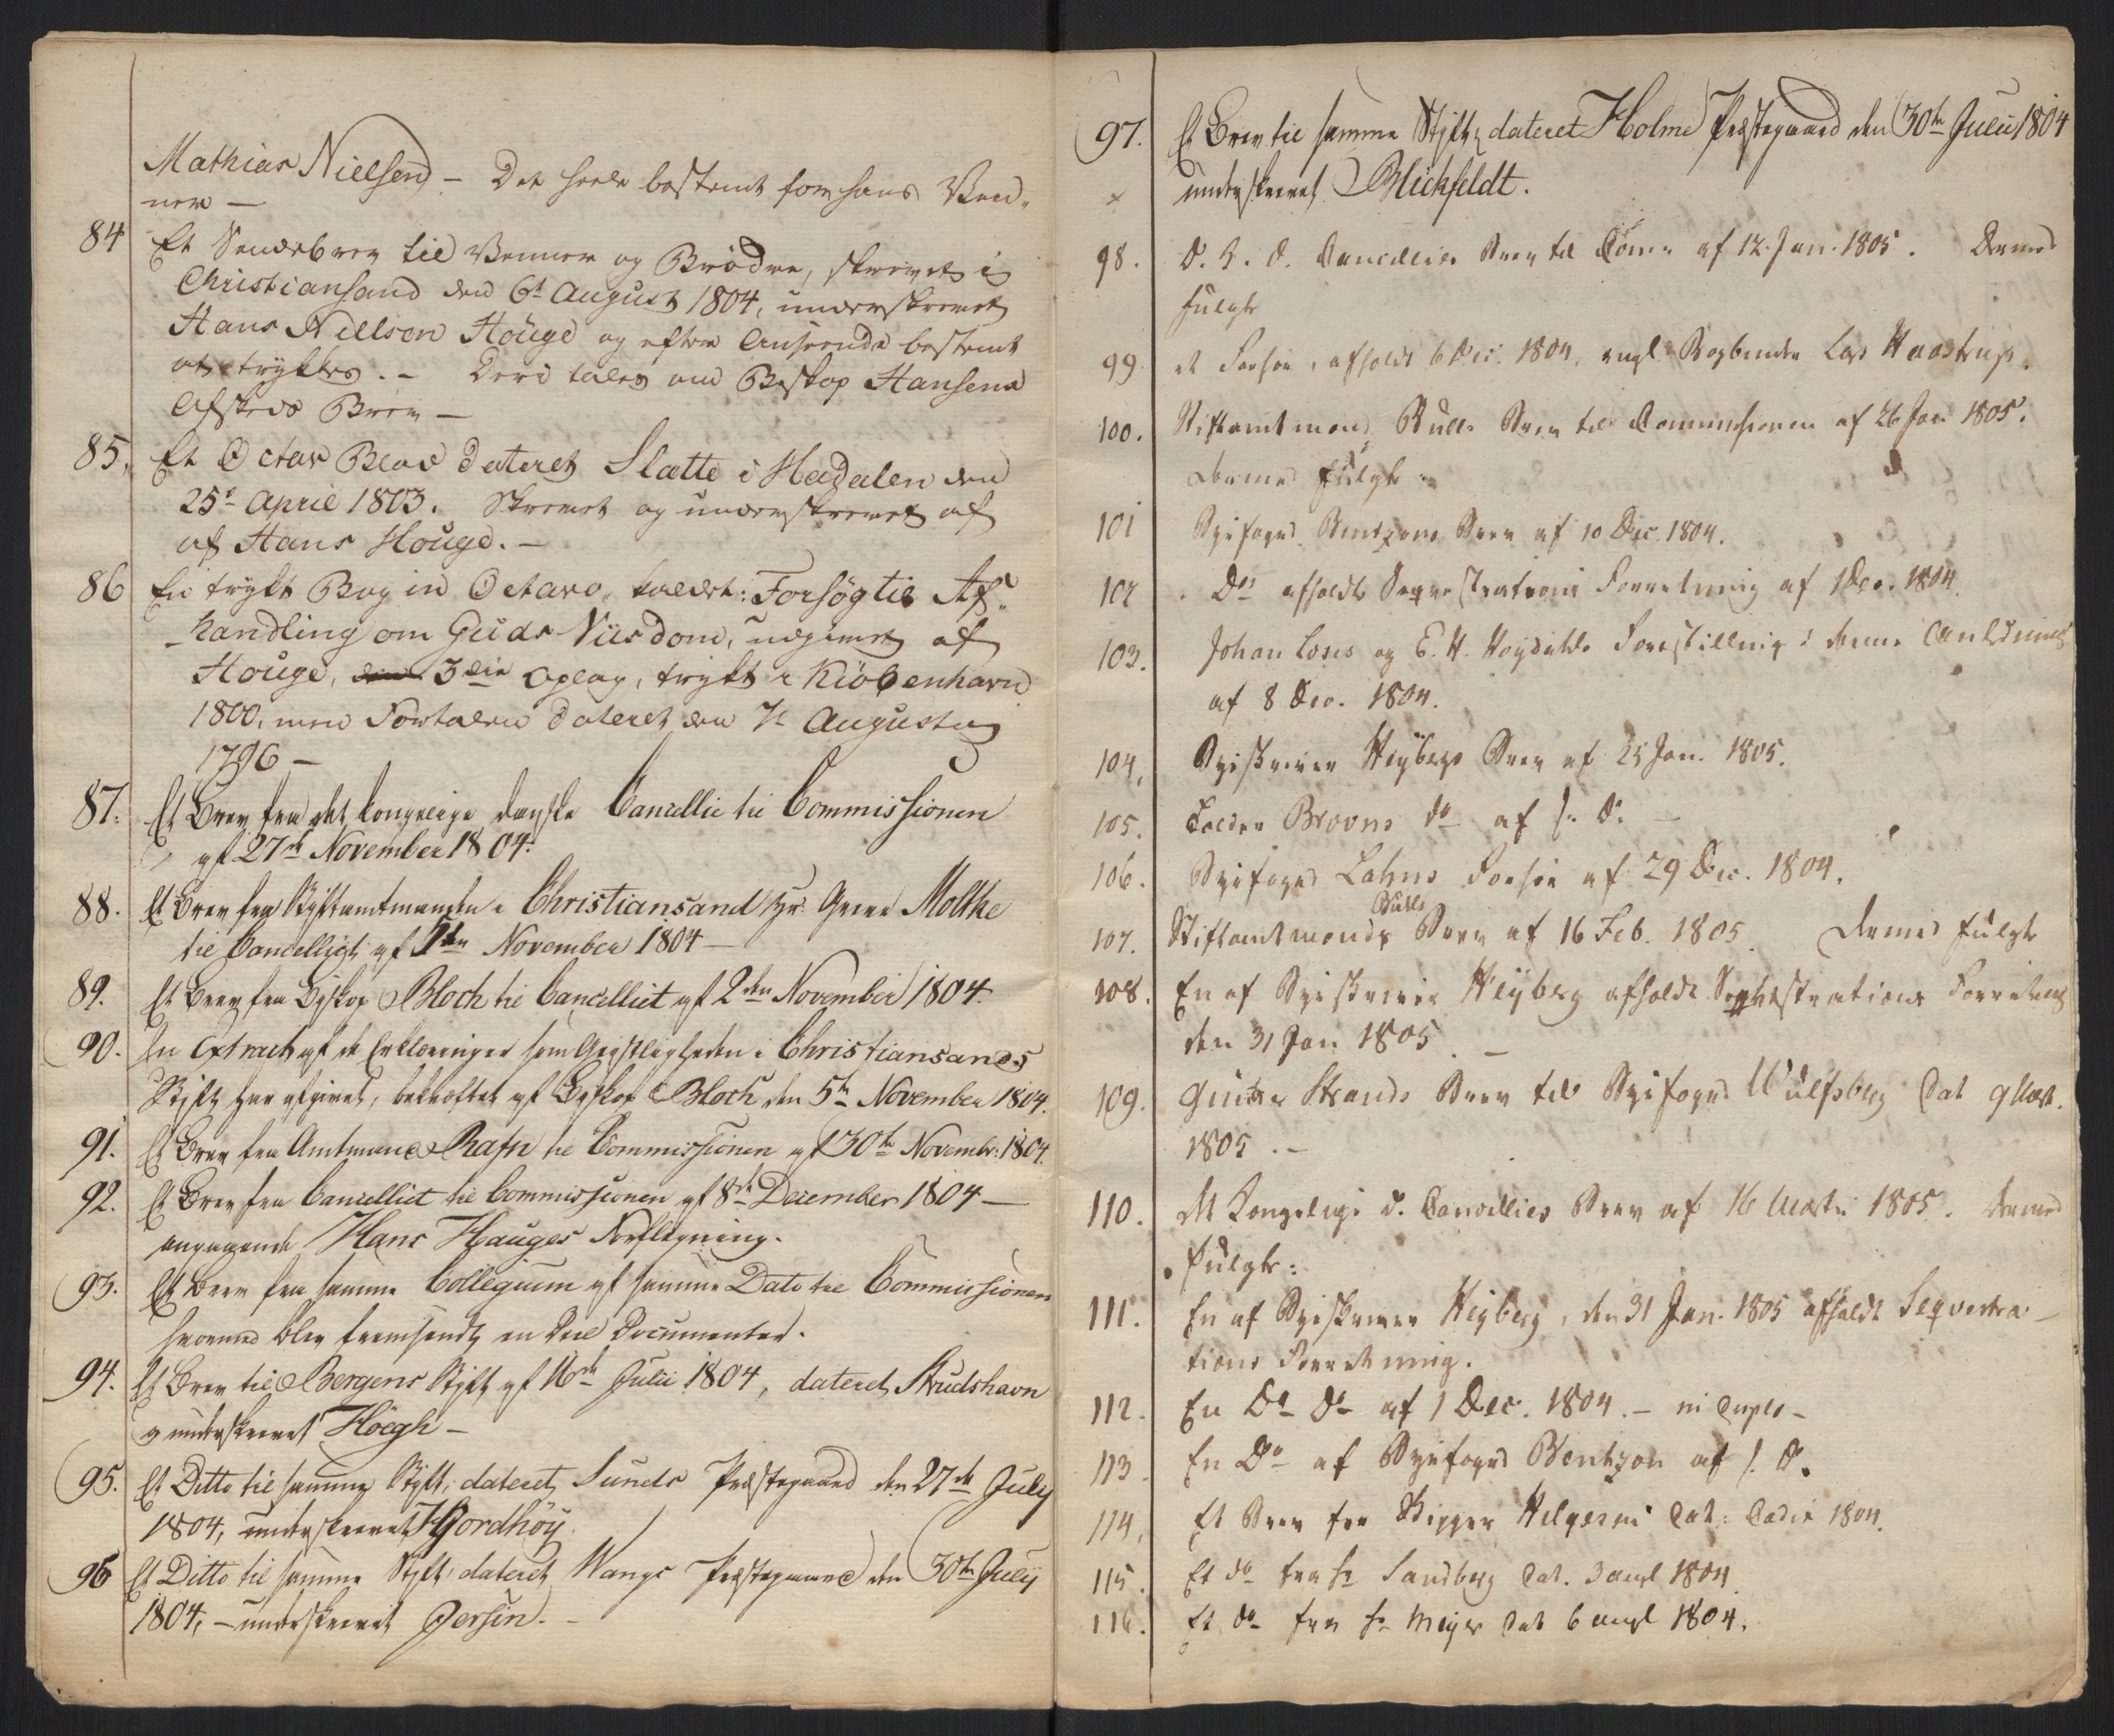 Mathias Nielsen, - Det heele bestemt for hans Ven-
ner -
84 Et Sendebrev til Venner og Brödre, skrevet i
Christiansand den 6t August 1804, underskrevet
Hans Nielsen Houge og efter Anseende bestemt
at trykkes. - Deri tales om Biskop Hansens
Afskeds Brev -
85. Et Octav Blad dateret Slatte i Hedalen den
25de April 1803. Skrevet og underskrevet af
af Hans Houge. -
86 En trykt Bog in Octavo, kaldet: Forsög til Af-
handling om Guds Viisdom, udgivet af
Houge, 3die Oplag, trykt i Kiöbenhavn
1800, men Fortalen dateret den 7t Augusti
1796 -
87. Et Brev fra det kongelige danske Cancellie til Commissionen
af 27de November 1804.
88. Et Brev fra Stiftamtmanden i Christiansand Hr. Greve Moltke
til Cancelliet af November 1804 -
89. Et Brev fra Biskop Bloch til Cancelliet af 2den November 1804
90. En Extract af de Erklæringer som Geistligheden i Christiansands
Stift har afgivet, bekræftet af Biskop Bloch den 5te November 1804.
91. Et Brev fra Amtmand Rafn til Commissionen af 30te Novembr: 1804.
92. Et Brev fra Cancelliet til Commissionen af 8de December 1804 -
angaaende Hans Hauges Forflegning.
93. Et Brev fra samme Collegium af samme Dato til Commissionen
hvormed blev fremsendt en Deel Documenter.
94. Et Brev til Bergens Stift af 16de Julii 1804, dateret Skudshavn
og underskrevet Höegh -
95. Et Ditto til samme Stift, dateret Sunds Præstegaard den 27de July
1804, underskrevet Hjordhöy.
96 Et Ditto til samme Stift, dateret Wangs Præstegaard den 30te July
1804, - underskrevet Jersin. -
97. Et Brev til samme Stift, dateret Holme Præstegaard den 30te Julii 1804
underskrevet Blichfeldt.
98. D. K. D. Cancellies Brev til Comm af 12 Jan. 1805. Dermed
fulgte
99. et Forhör, afholdt 6 Dec. 1804, angl. Bogbinder Lars Haastrup.
100. Stiftamtmand Bulls Brev til Commissionen af 26 Jan 1805.
dermed fulgte
101 Byefoged Bentzens Brev af 10 Dec. 1804.
102 Do afholdte Seqvestrations Forretning af 1 Dec. 1804.
103. Johan Loses og E. H. Höydahls Forestilling i denne Anledning
af 8 Dec. 1804.
104, Byeskriver Heybergs Brev af 25 Jan. 1805.
105. Tolder Brovns do af s. D. -
106. Byefoged Lahns Forhör af 29 Dec. 1804.
Bulls
107. Stiftamtmands Brev af 16 Feb. 1805. dermed fulgte
108. En af Byeskriver Heyberg afholdt Seqvestrations Forretning
den 31 Jan 1805. -
109. Strands Brev til Byefoged Wulfsberg Dat 9 Mart.
1805. -
110. Det Kongelige d. Cancellies Brev af 16 Martii 1805. dermed
fulgte:
111. En af Byeskriver Heyberg, den 31 Jan. 1805 afholdt Seqvestra-
tions Forretning.
112. En Do Do af 1 Dec. 1804. - in duplo -
113. En Do af Byefoged Bentzon af s. D.
114, Et Brev fra Skipper Helgesen Dat: 1804.
115. Et do fra Hr Sandberg Dat. 3 1804.
116. Et do fra Hr Meyer Dat 6 1804.